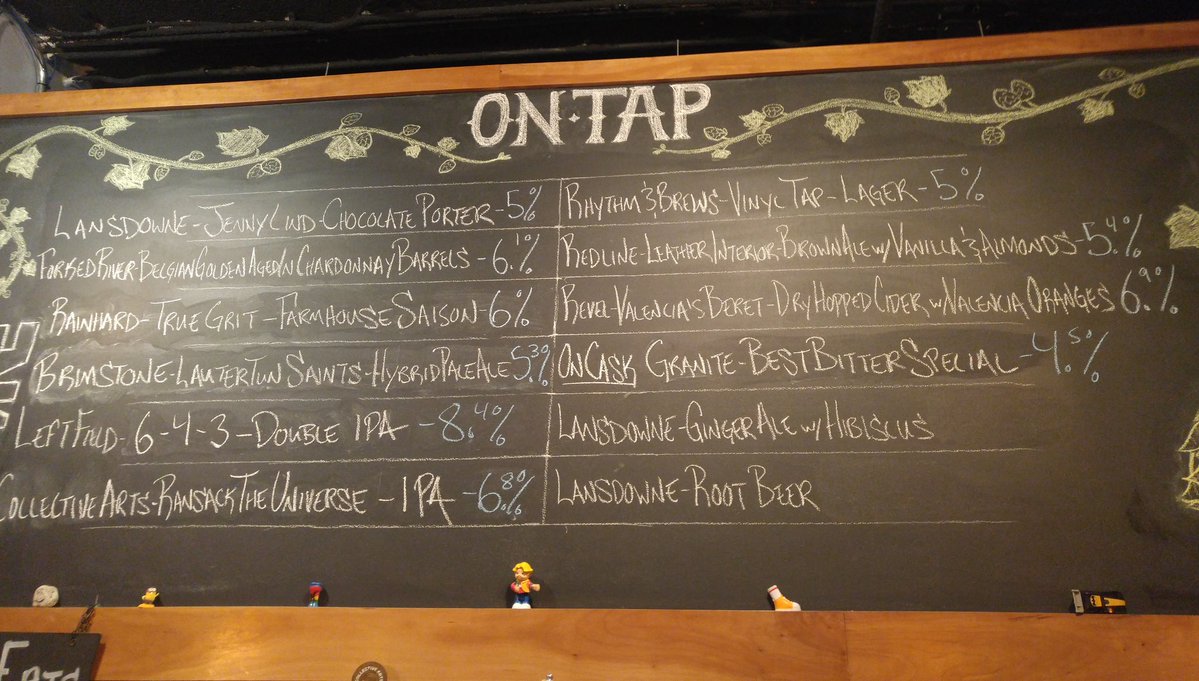 ON·TAP
LANSDOWNE-JENNY LIND-CHOCOLATE PORTER-5%
FORKED RIVER-BELGIAN GOLDEN AGED IN CHARDONNAY BARRELS-6.1%
RAINHARD-TRUE GRIT-FARMHOUSE SAISON-6%
BRIMSTONE-LAUTER TUN SAINTS-HYBRID PALE ALE 5.3%
LEFT FIELD-6-4-3-DOUBLE IPA-8.4%
COLLECTIVE ARTS-RANSACK THE UNIVERSE-IPA-6.8%
RHYTHM & BREWS-VINYL TAP-LAGER-5%
REDLINE-LEATHER INTERIOR-BROWN ALE W/ VANILLA & ALMONDS-5.4%
REVEL-VALENCIA'S BERET-DRY HOPPED CIDER W/ VALENCIA ORANGES 6.9%
ON CASK GRANITE-BEST BITTER SPECIAL-4.5%
LANSDOWNE-GINGER ALE W/ HIBISCUS
LANSDOWNE-ROOT BEER